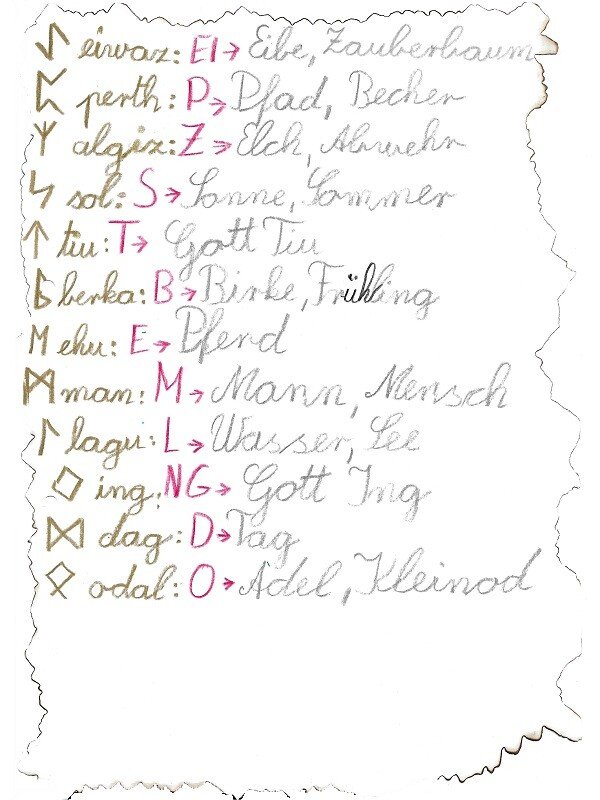 ᛇ eiwaz: EI → Eibe, Zauberbaum
ᛈ perth: P → Pfad, Becher
ᛉ algiz: Z → Elch, Abwehr
ᛋ sol: S → Sonne, Sommer
ᛏ tiu: T → Gott Tiu
ᛒ berka: B → Birke, Frühling
ᛖ ehu: E → Pferd
ᛗ man: M → Mann, Mensch
ᛚ lagu: L → Wasser, See
ᛜ ing: NG → Gott Ing
ᛞ dag: D → Tag
ᛟ odal: O → Adel, Kleinod